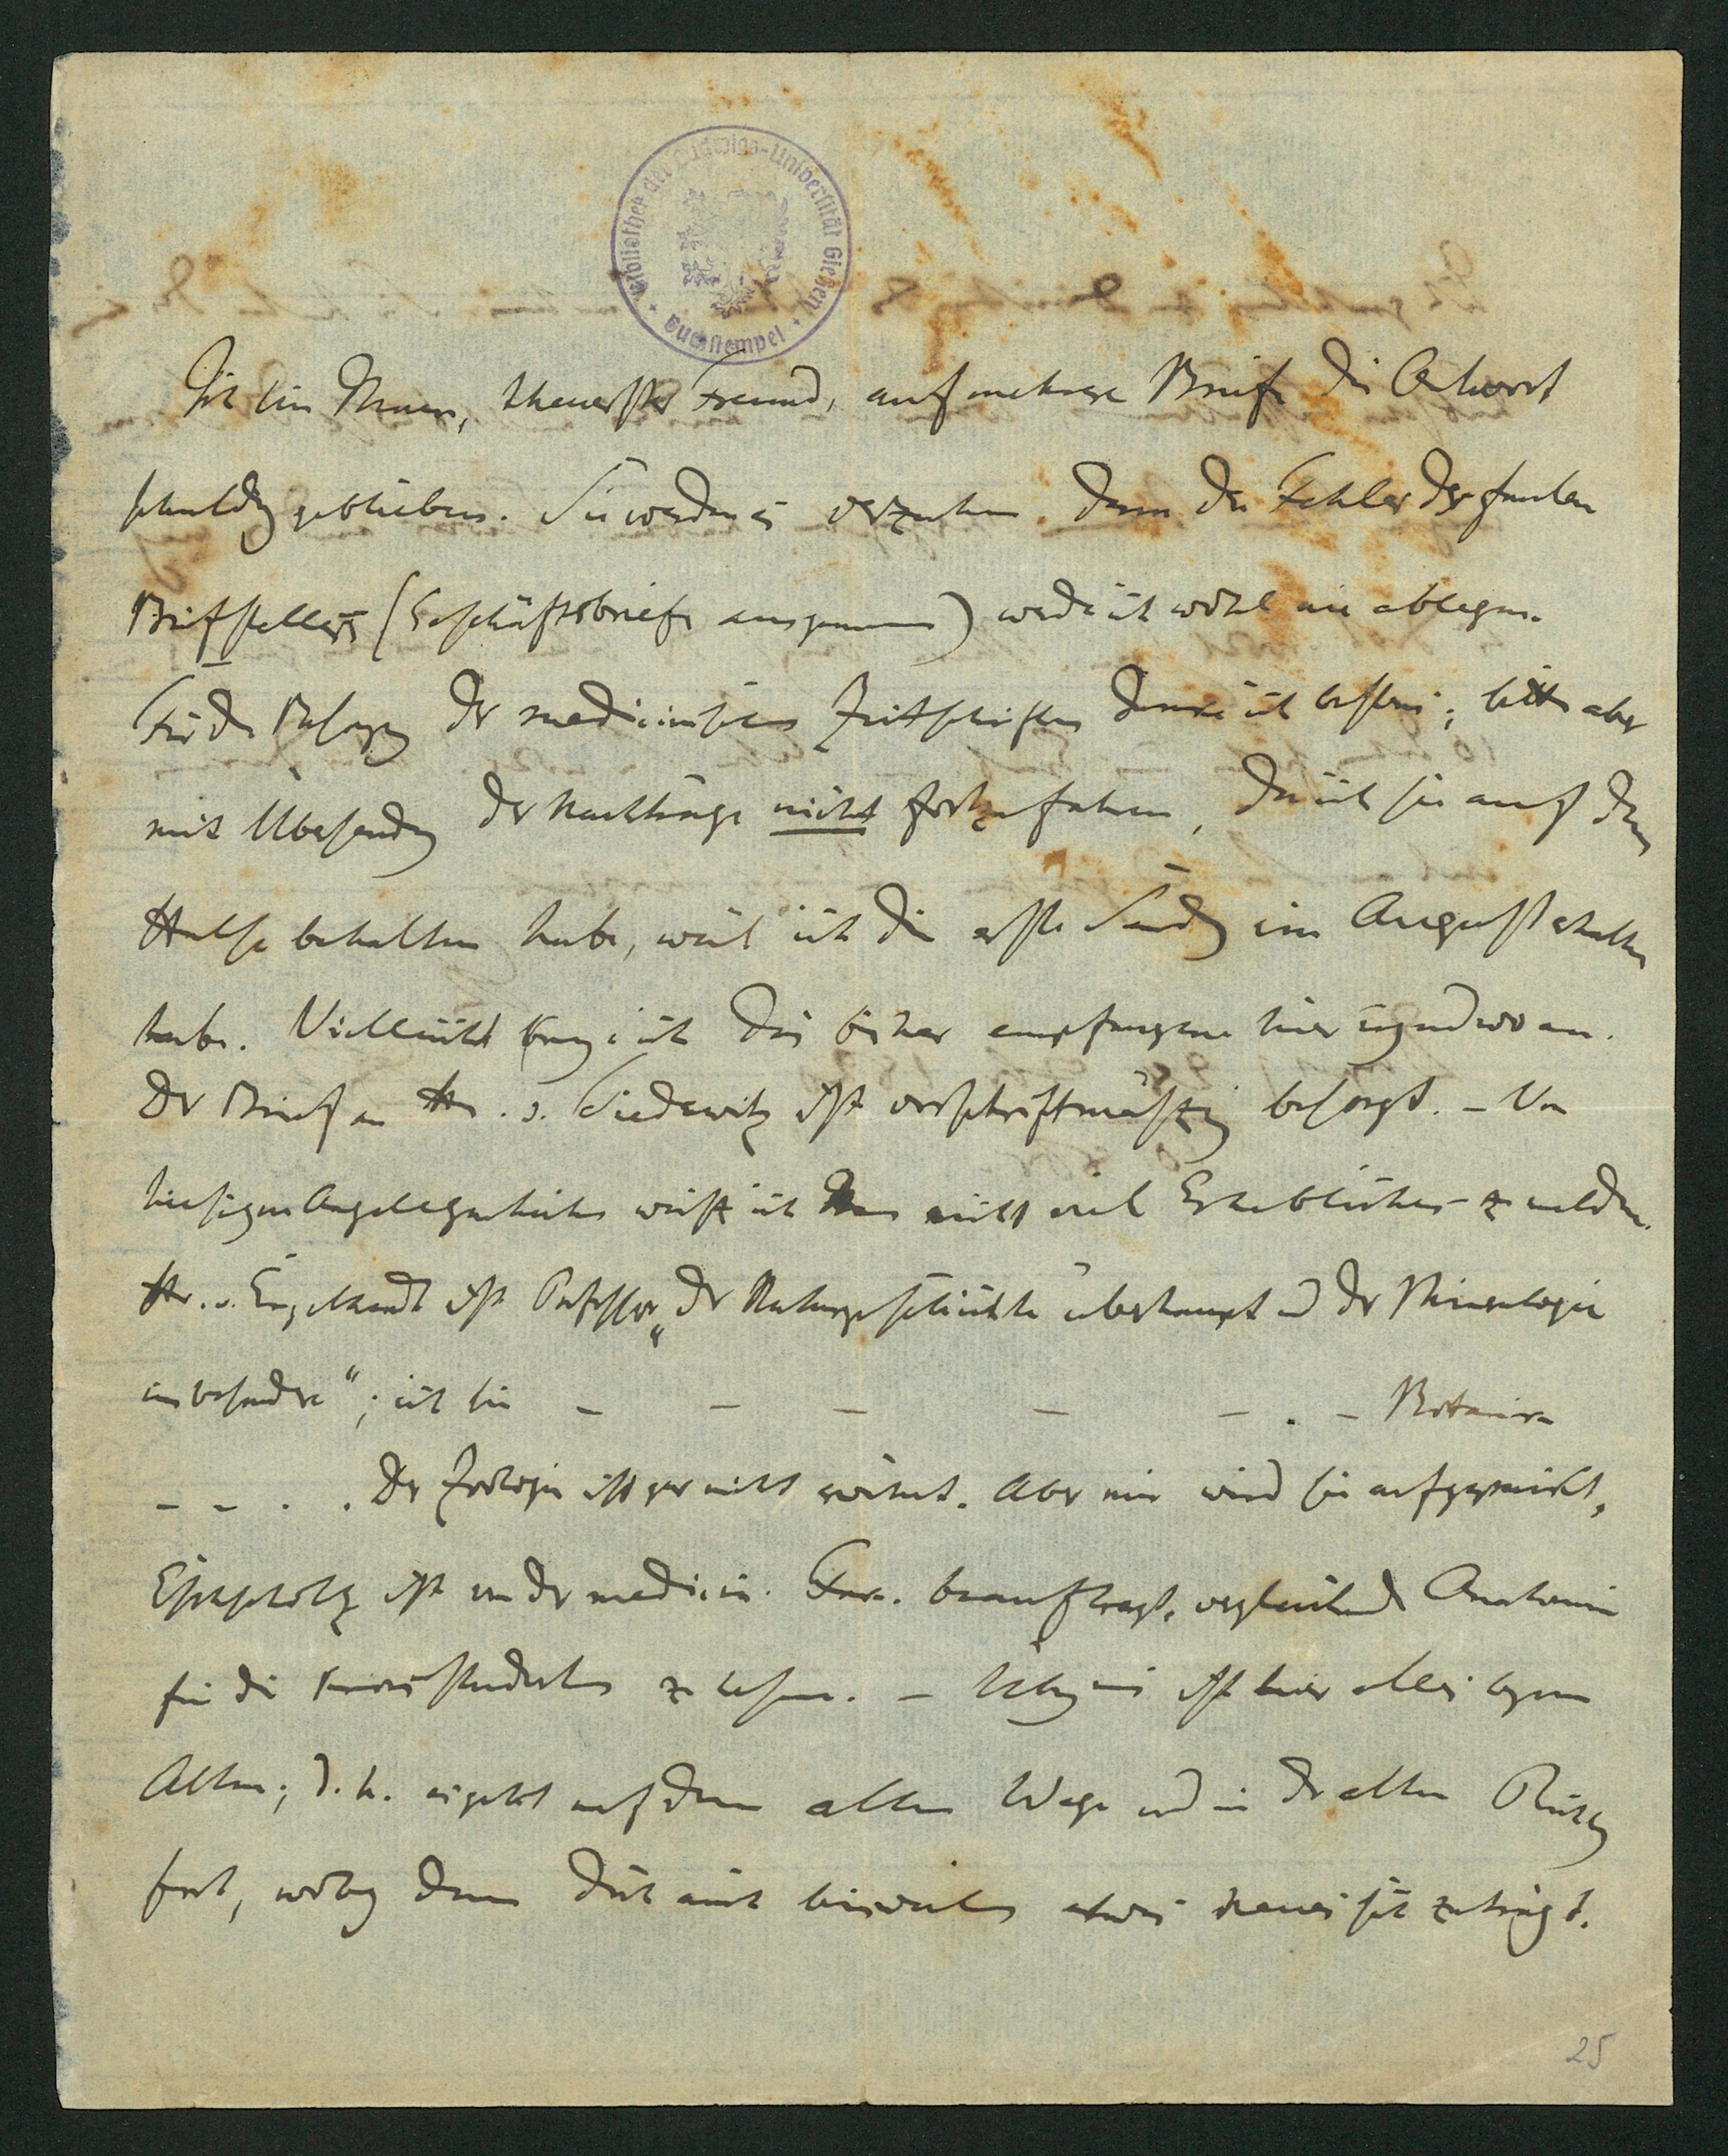 Bibliothek der Ludwigs-Universität Gießen
Buchstempel
Ich bin Ihnen, theuerster Freund, auf mehrere Briefe die Antwort
schuldig geblieben. Sie werden es verzeihen denn den Fehler des faulen
Briefstellers (Geschäftsbriefe ausgenommen) werde ich wohl nie ablegen.
Für die Besorgung der medicinischen Zeitschriften danke ich bestens; bitte aber
mit Übersendung der Nachträge nicht fortzufahren, da ich sie auf dem
Halse behalten habe, weil ich die erste Sendung im August erhalten
habe. Vielleicht bringe ich das bisher empfangene hier irgendwo an.
Der Brief an Hr. v. ist vorschriftmäßig besorgt. – Von
hiesigen Angelegenheiten weiß ich Ihnen nicht viel Erhebliches zu melden.
Hr. v. Engelhardt ist Professor „der Naturgeschichte überhaupt und der Mineralogie
insbesondere“; ich bin – – – – – . – Botanik
– – . . Der Zoologie ist gar nicht erwähnt. Aber mir wird sie aufgepackt,
Eschscholtz ist von der medicin. Fac. beauftragt, vergleichende Anatomie
für die Kronsstudenten zu lesen. – Übrigens ist hier alles beym
Alten; d. h. es geht auf dem alten Wege und in der alten Richtung
fort, wobey denn doch auch bisweilen etwas neues sich zuträgt.
25